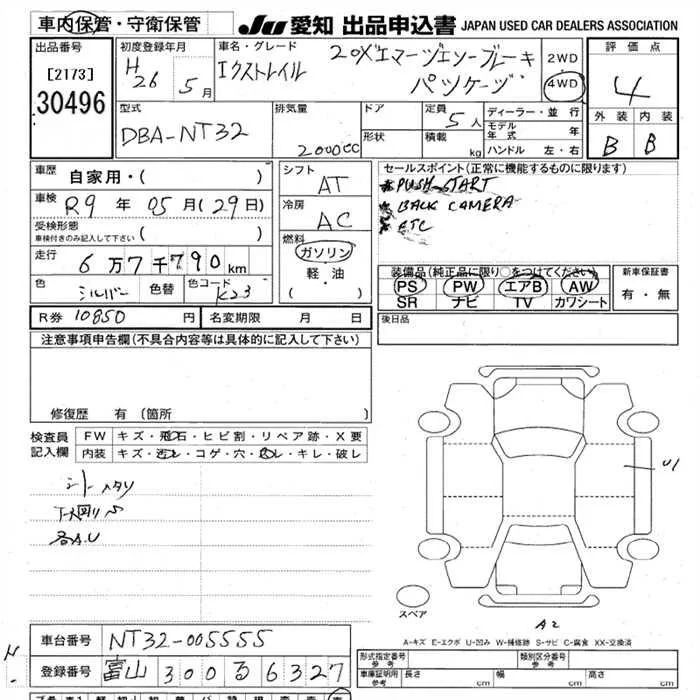 車内保管・守衛保管 JU 愛知 出品申込書 JAPAN USED CAR DEALERS ASSOCIATION
出品番号 [2173] 30496
初度登録年月 H26 5月
車名・グレード エクストレイル 20X エマージェンシーブレーキ パッケージ
2WD 4WD
評価点 4
外装 内装 B B
型式 DBA-NT32
排気量 2000cc
ドア 形状
定員 5人 積載 kg
ディーラー・並行
モデル年式 年
ハンドル 左・右
車歴 自家用・( )
車検 R9年05月(29日)
受検形態 車検付きのみ記入して下さい ( )
走行 6万7千790km
色 シルバー 色替 色コード K23
シフト AT
冷房 AC
燃料 ガソリン 軽・油 ( ・ )
セールスポイント(正常に機能するものに限ります)
PUSH START
BACK CAMERA
ETC
装備品(純正品に限り○をつけてください)
PS PW エアB AW
SR ナビ TV カワシート
新車保証書 有・無
R券 10850円 名変期限 月 日
後日品
注意事項申告欄(不具合内容等は具体的に記入して下さい)
修復歴 有(箇所
検査員記入欄
FW キズ・飛石・ヒビ割・リペア跡・X要
内装 キズ・汚レ・コゲ・穴・スレ・キレ・破レ
シートヘタリ
各A.U
U1
スペア
A2
A-キズ E-エクボ U-凹み W-補修跡 S-サビ C-腐食 XX-交換済
車台番号 NT32-005555
登録番号 富山 300 る 6327
型式指定番号 参考 類別区分番号 参考
車庫証明用 参考 長さ cm 幅 cm 高さ cm